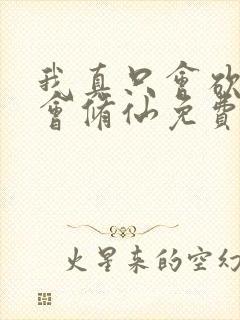 我真只會欲
會脩仙免費
火星来的空幻